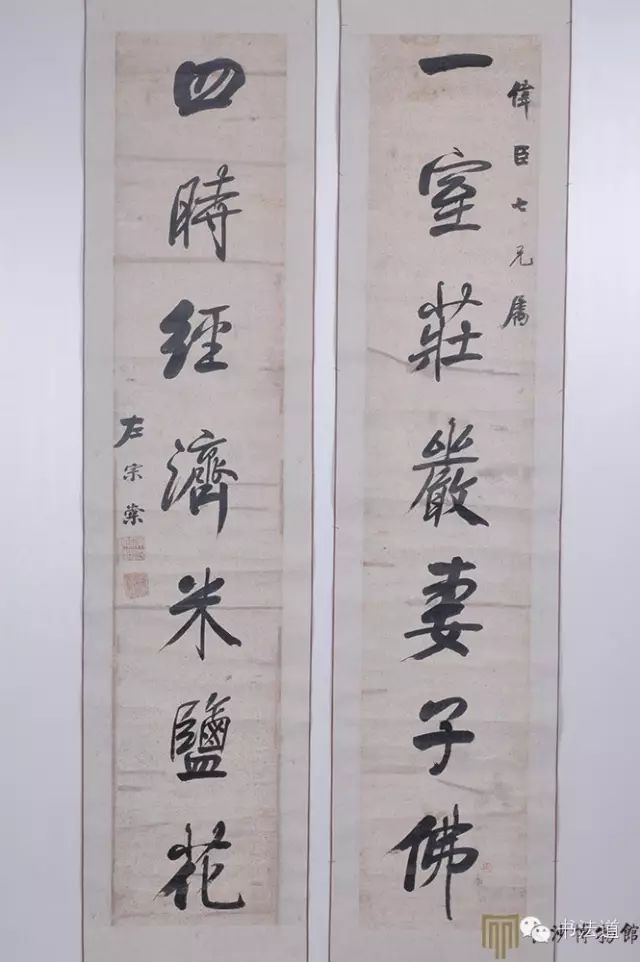 偉臣七兄屬
一室莊嚴妻子佛
四時經濟米鹽花
左宗棠
書法道
沙博物館